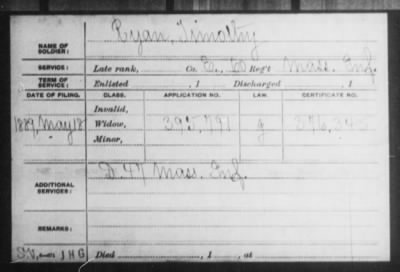 NAME OF SOLDIER: Ryan, Timothy
SERVICE: Late rank, Co. E, 60 Reg't Mass. Inf.
TERM OF SERVICE: Enlisted , 1 Discharged , 1
DATE OF FILING. CLASS. APPLICATION NO. LAW. CERTIFICATE NO.
Invalid,
1889, May 18 Widow, 395,791 g 376,345
Minor,
ADDITIONAL SERVICES: D. 47 Mass. Inf.
REMARKS:
JHG Died , 1 , at